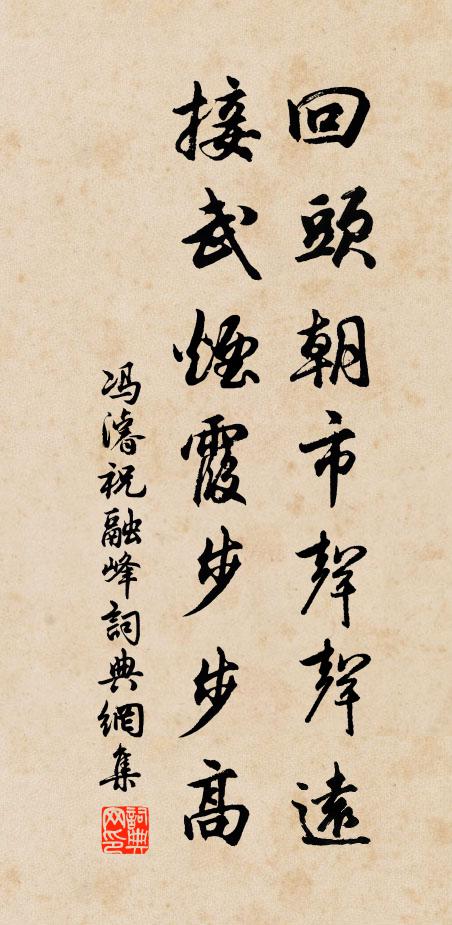 回頭朝市聲聲遠
接武煙霞步步高
冯濬祝融峰詞典網集
詞典网印